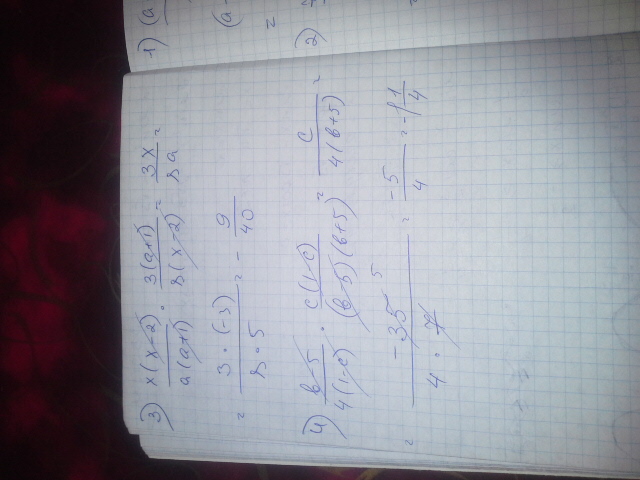 3) x(x-2)/a(a+1) · 3(a+1)/8(x-2) = 3x/8a =
= 3·(-3)/8·5 = - 9/40
4) b-5/4(1-c) · c(1-c)/(b-5)(b+5) = c/4(b+5) =
= -35/4·7 = -5/4 = -1 1/4
1) (a
(a-
=
2)